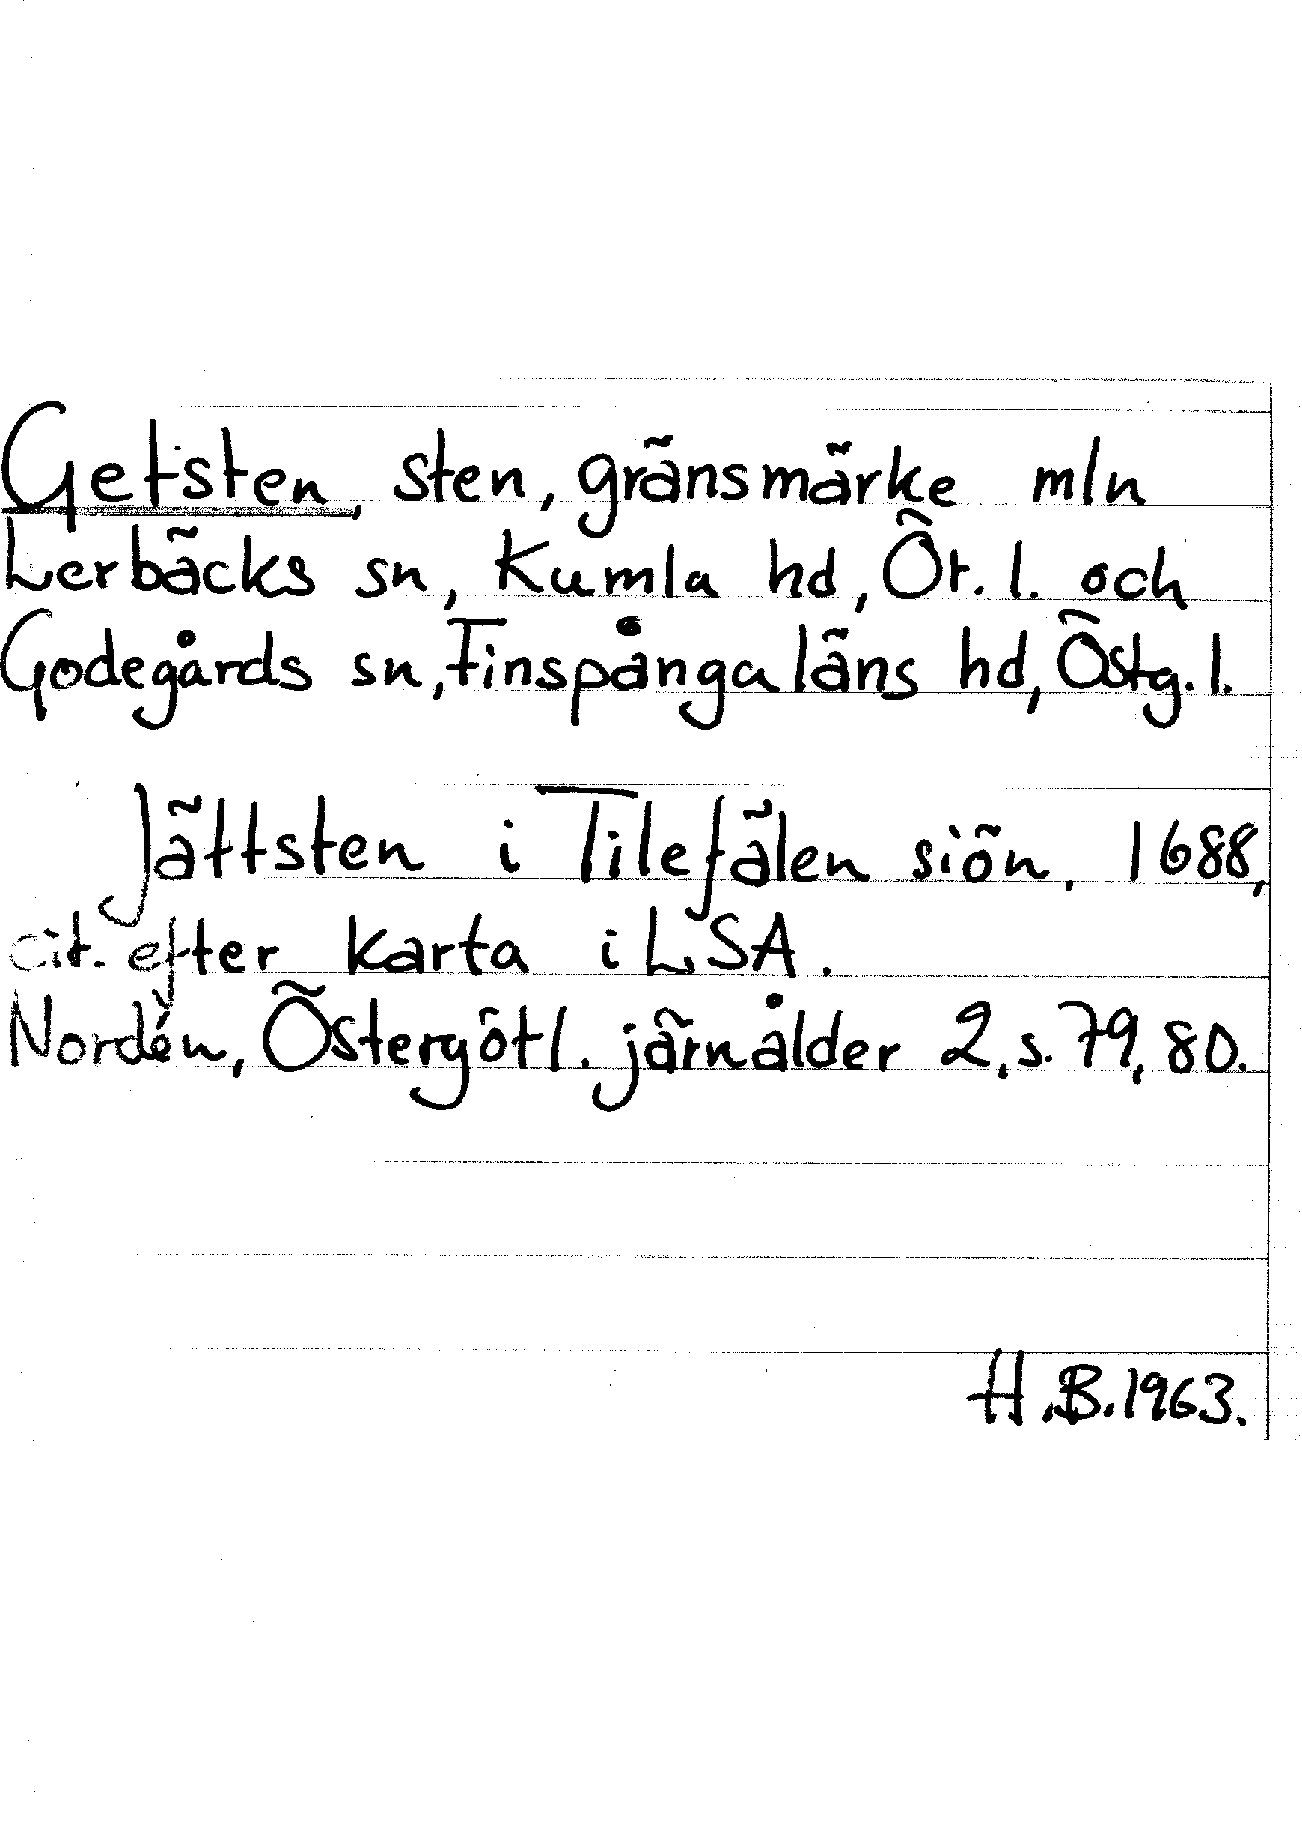 Getsten, sten, gränsmärke mln
Lerbäcks sn, Kumla hd, Ör. l. och
Godegårds sn, Finspånga läns hd, Östg. l.
Jättsten i Tilefälen siön, 1688,
cit. efter karta i LSA.
Nordén, Östergötl. järnålder 2, s. 79, 80.
H.B. 1963.